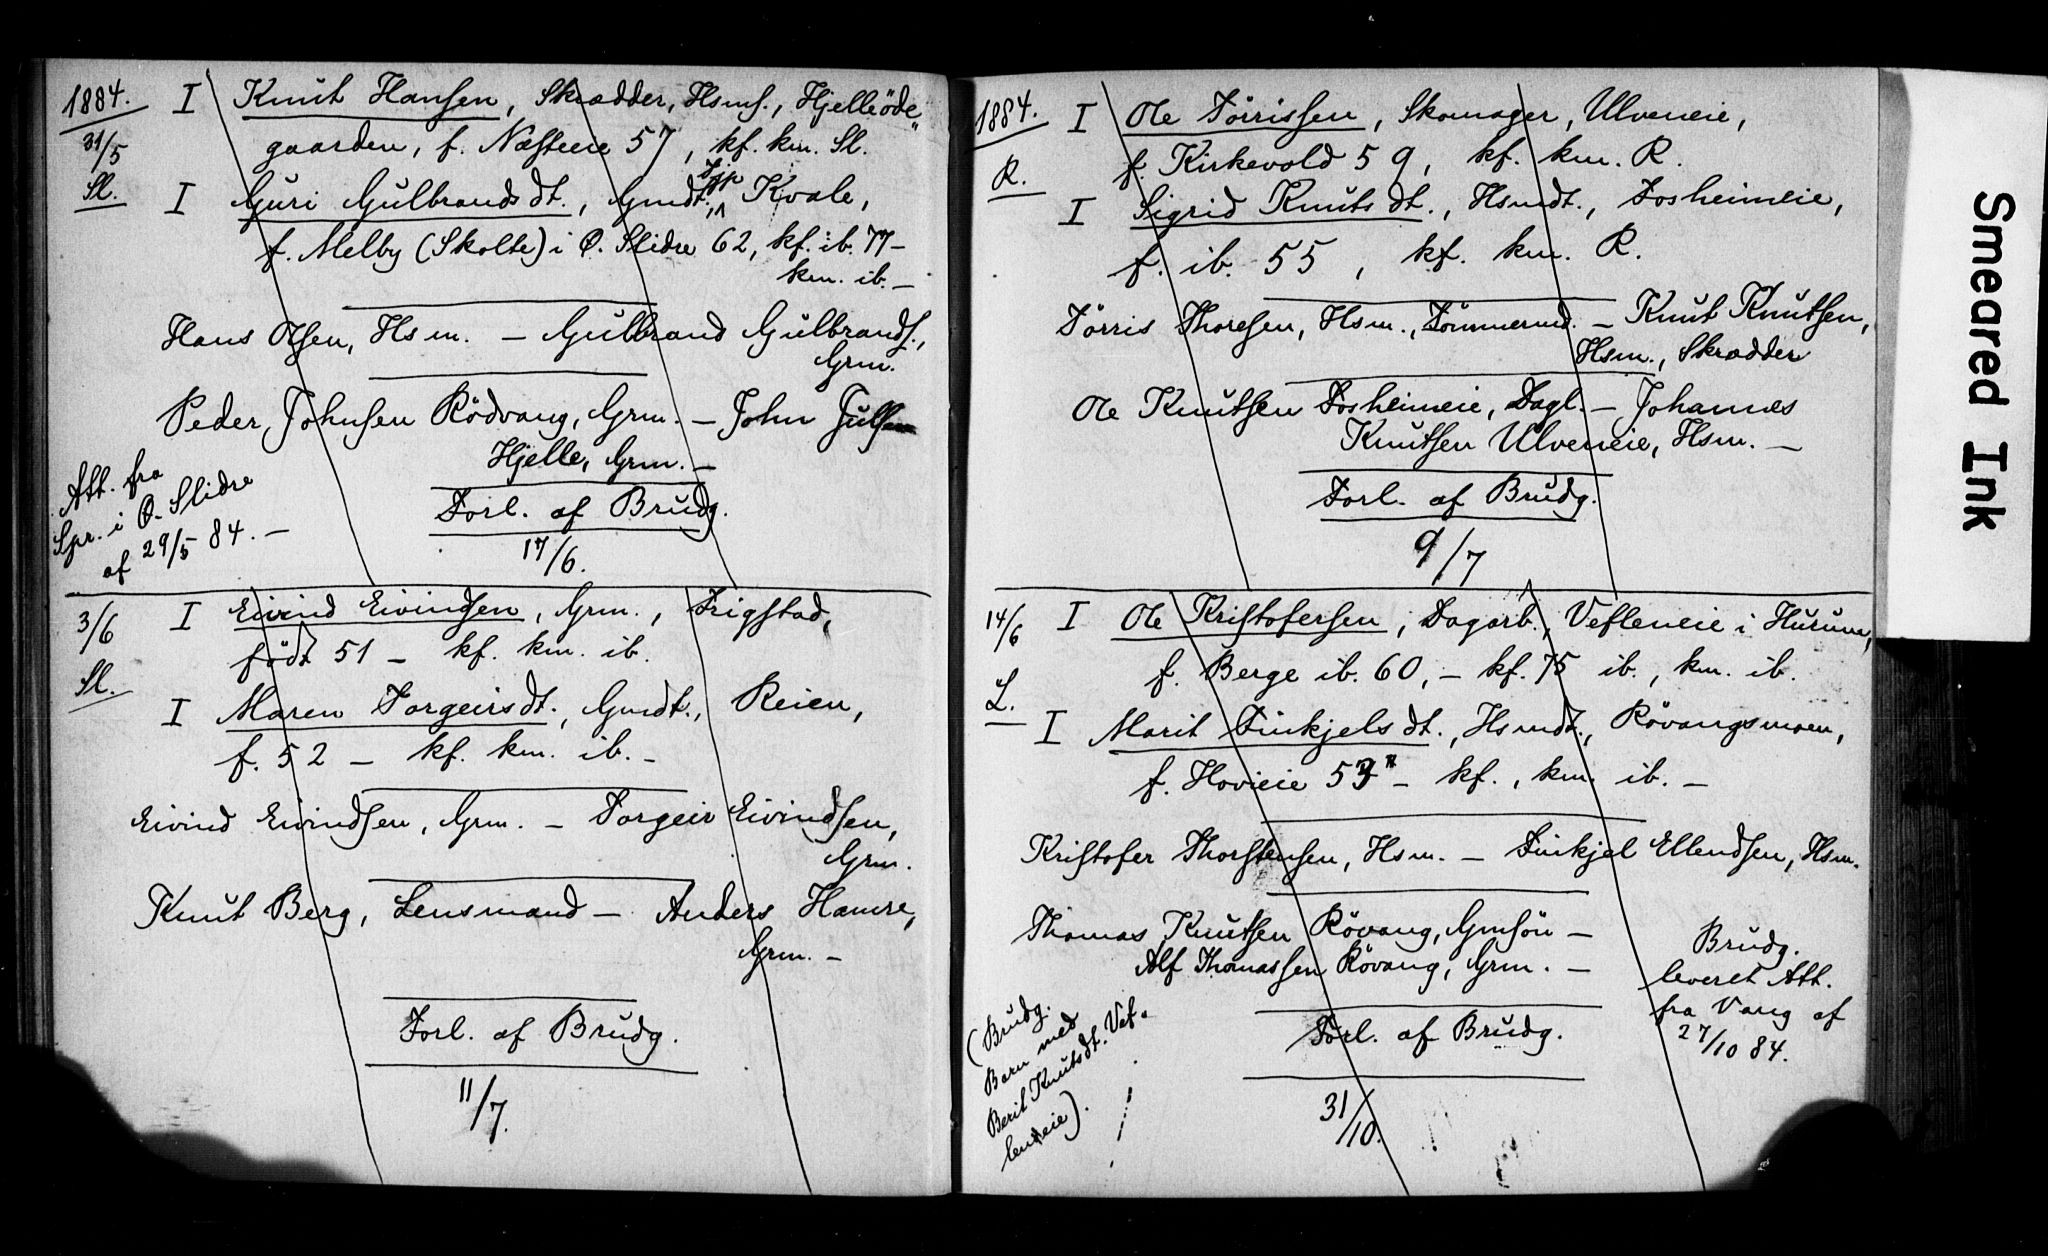 1884. I Knut Hansen, Skrædder, Hsmf., Hjelleöde„
31/5 gaarden, f. Næsteeie 57, kf. km. Sl.
Sl. I Guri Gulbrandsdt., Gmdt., Kvale,
f. Melby (Skolte) i Ø. Slidre 62, kf. ib. 77 –
km. ib. –
Hans Olsen, Hsm. – Gulbrand Gulbrands.,
Grm.
Peder Johnsen Rödvang, Grm. – John Juls
Hjelle, Grm. –
Att. fra
Spr. i Ø. Slidre
af 29/5 84. –
Forl. af Brudg.
17/6.
3/6 I Eivind Eivindsen, Grm., Trigstad,
født 51 – kf. km. ib.
Sl.
I Maren Torgeirsdt., Gmdt., Reien,
f. 52 – kf. km. ib. –
Eivind Eivindsen, Grm. – Torgeir Eivindsen,
Grm.
Knut Berg, Lensmand – Anders Hamre,
Grm. –
Forl. af Brudg.
11/7.
1884. I Ole Törrissen, Skomager, Ulveneie,
R. f. Kirkevold 59, kf. km. R.
I Sigrid Knutsdt., Hsmdt., Fosheimeie,
f. ib. 55, kf. km. R.
Törris Thoresen, Hsm., Tömmermd. – Knut Knutsen,
Hsm., Skrædder
Ole Knutsen Fosheimeie, Dagl. – Johannes
Knutsen Ulveneie, Hsm. –
Forl. af Brudg.
9/7
14/6 I Ole Kristofersen, Dagarb., Vefleneie i Hurum,
f. Berge ib. 60, – kf. 75 ib., km. ib.
L.
I Marit Finkjelsdt., Hsmdt., Rövangsmoen,
f. Hovieie 53 – kf., km. ib. –
Kristofer Thorstensen, Hsm. – Finkjel Ellendsen, Hsm.
Thomas Knutsen Rövang, Gmsön –
Alf Thomassen Rövang, Grm. –
Brudg.
leveret Att.
fra Vang af
27/10 84.
(Brudg.
Barn med
Berit Knutsdt. Vef-
leneie).
Forl. af Brudg.
31/10.
Smeared Ink